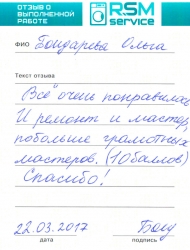 ОТЗЫВ О
ВЫПОЛНЕННОЙ
РАБОТЕ
RSM
service
ФИО Бондарева Ольга
Текст отзыва
Всё очень понравилось
И ремонт и мастер,
побольше грамотных
мастеров. (10 баллов)
Спасибо!
22.03.2017
дата
подпись